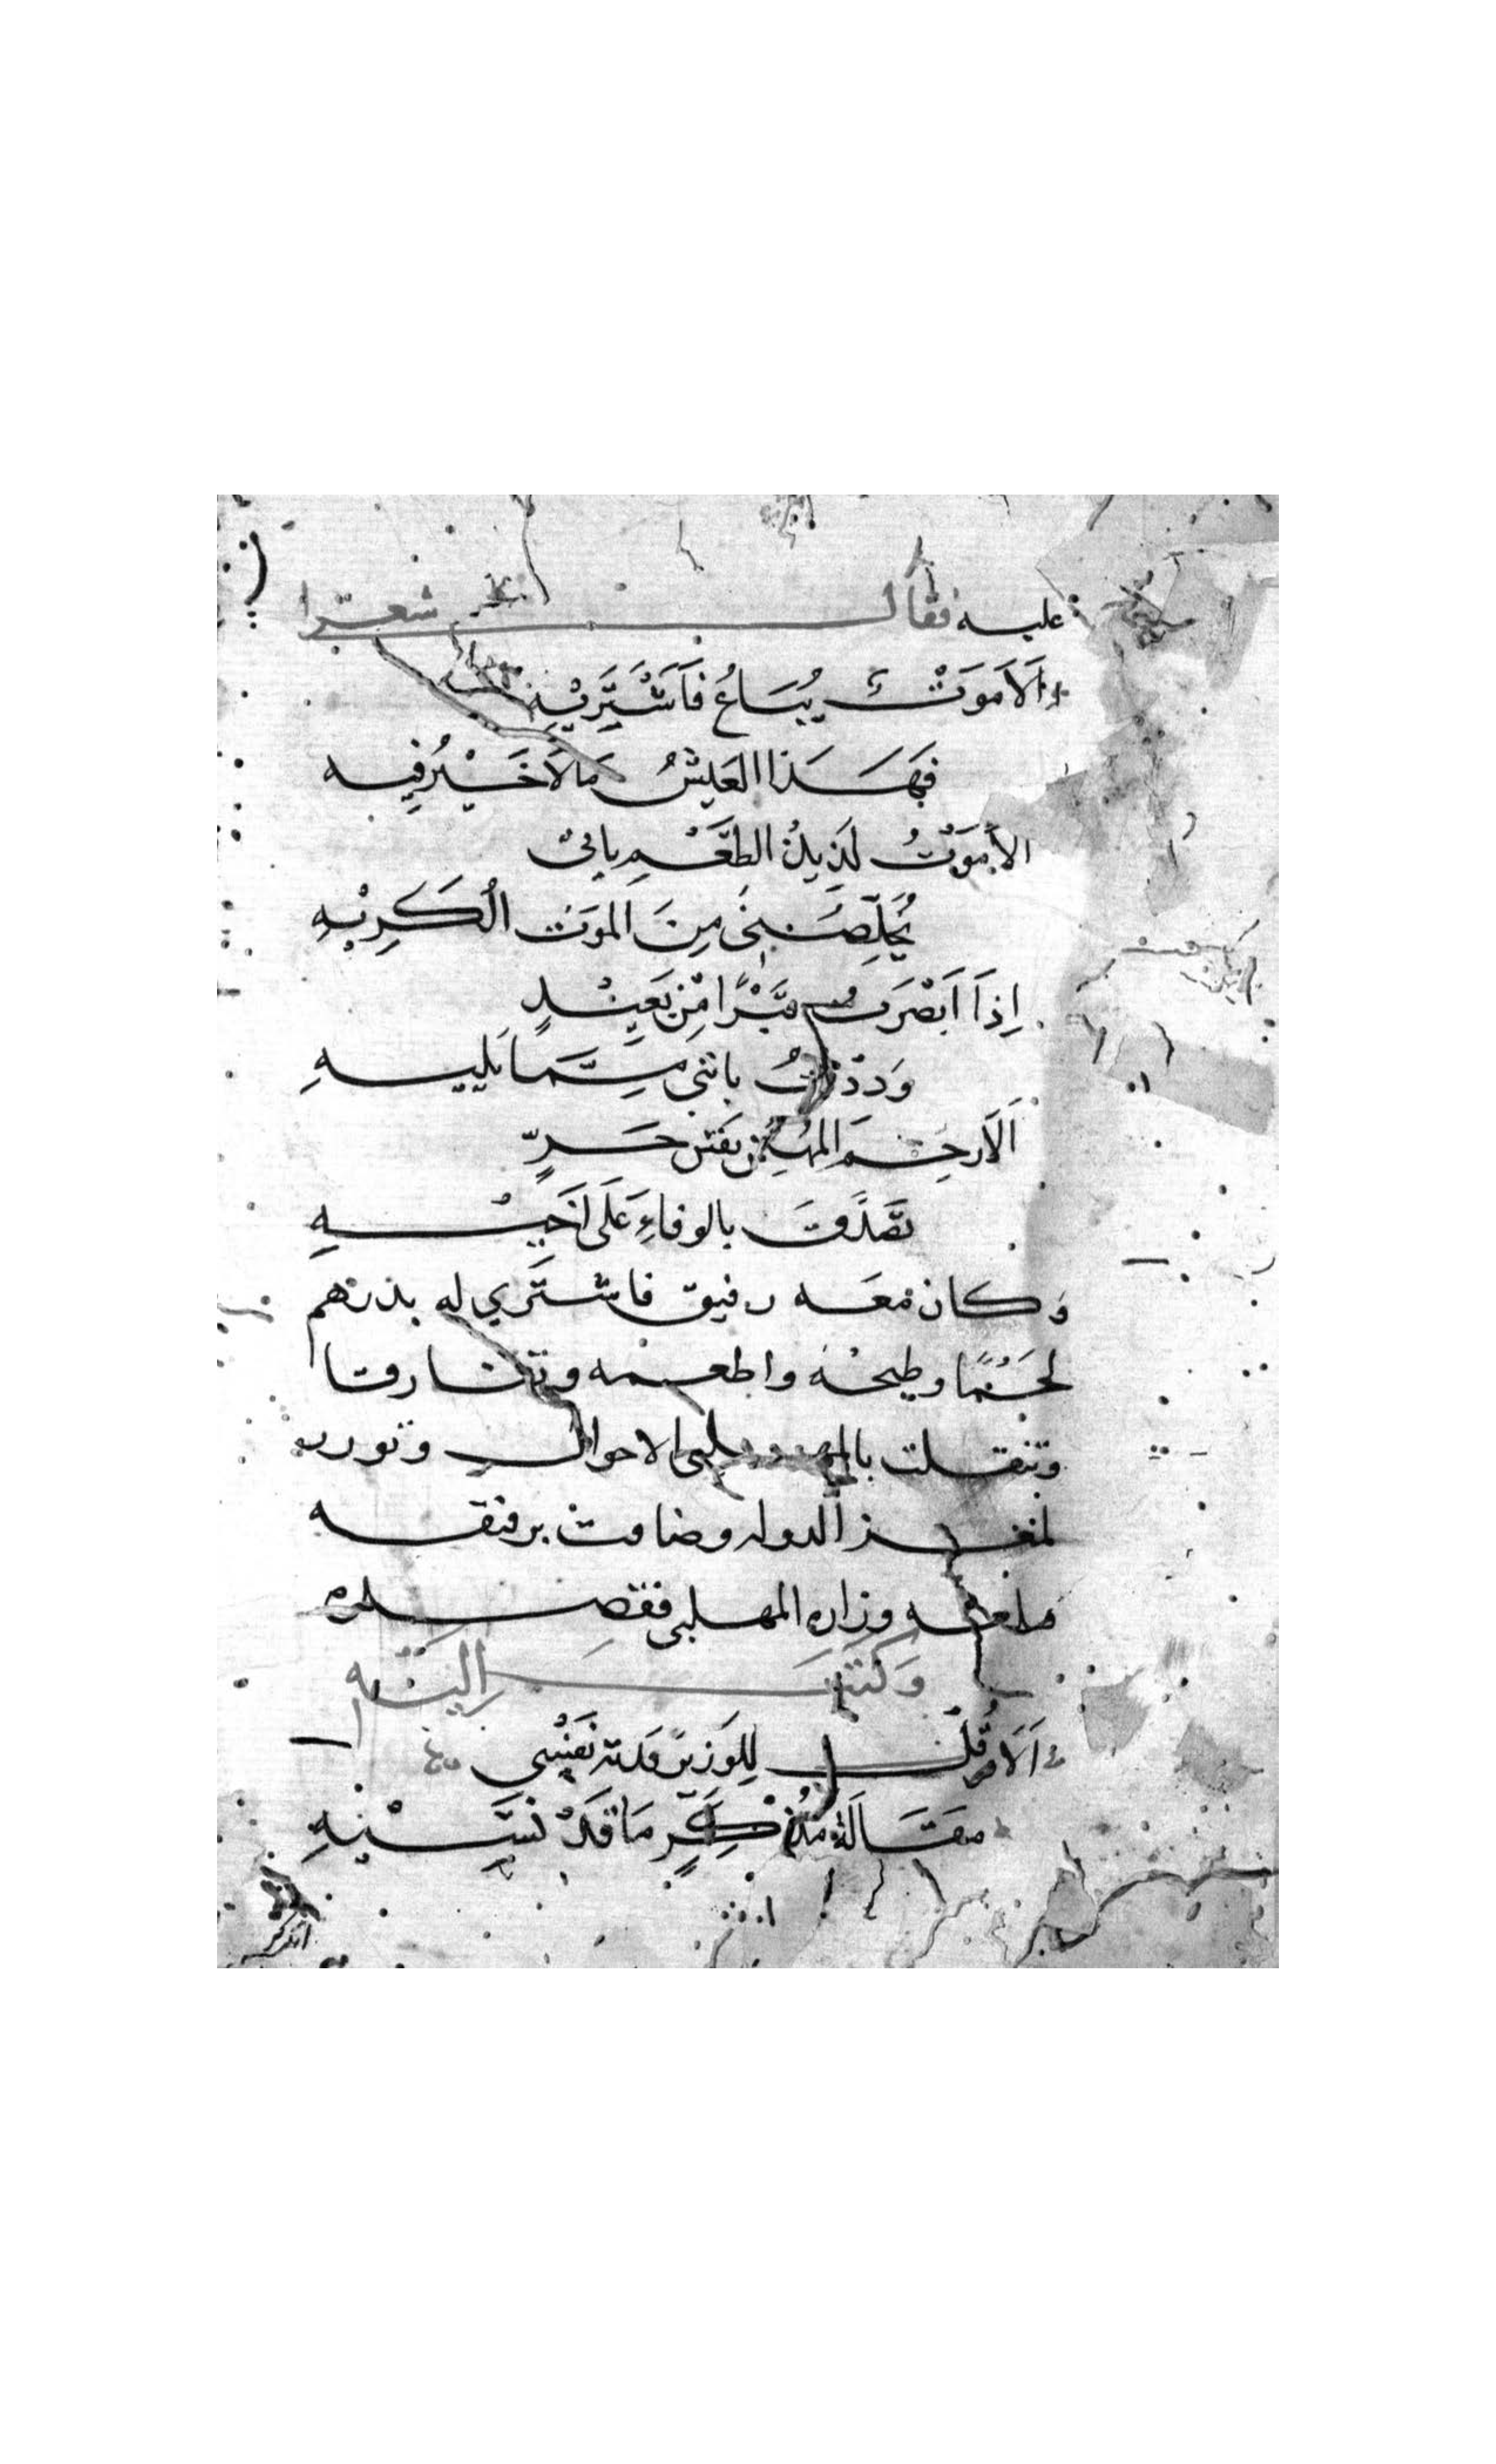 عليه فقال شعرا
اَلَا مَوْتٌ يُبَاعُ فَاَشْتَرِيْهِ
فَهَذَا العَيشُ مَالَا خَيْرُ فِيه
الا مَوْتُ لَذِيذُ الطَّعْمِ ياتى
يُخَلِّصُنِى مِنَ المَوتِ الْكَرِيْهِ
اِذَا اَبْصَرتُ قبْرًا مِن بَعِيْدٍ
وَدَدْتُ بانني مِمَّا يَلِيهِ
اَلَا رحِمَ المُهَيْمِنُ نفسَ حَرٍّ
تصَدَّقَ بالوفاءِ عَلَى اَخِيْهِ
وكان معه رفيق فاشترى له بدرهم
لحْمًا وطبخه واطعمه وتفارقا
وتنقلت بالمهلبى الاحوال وتوزر
لمعز الدوله وضاقت برفيقه
فبلغه وزاره المهلبى فقصده
وَكتبَ اِليْهِ
اَلَا قُلْ لِلْوَزِيرِ فَدته نَفْسِي
مقَالَة مُذْكِّرٍ مَا قَدْ نَسِيْهِ